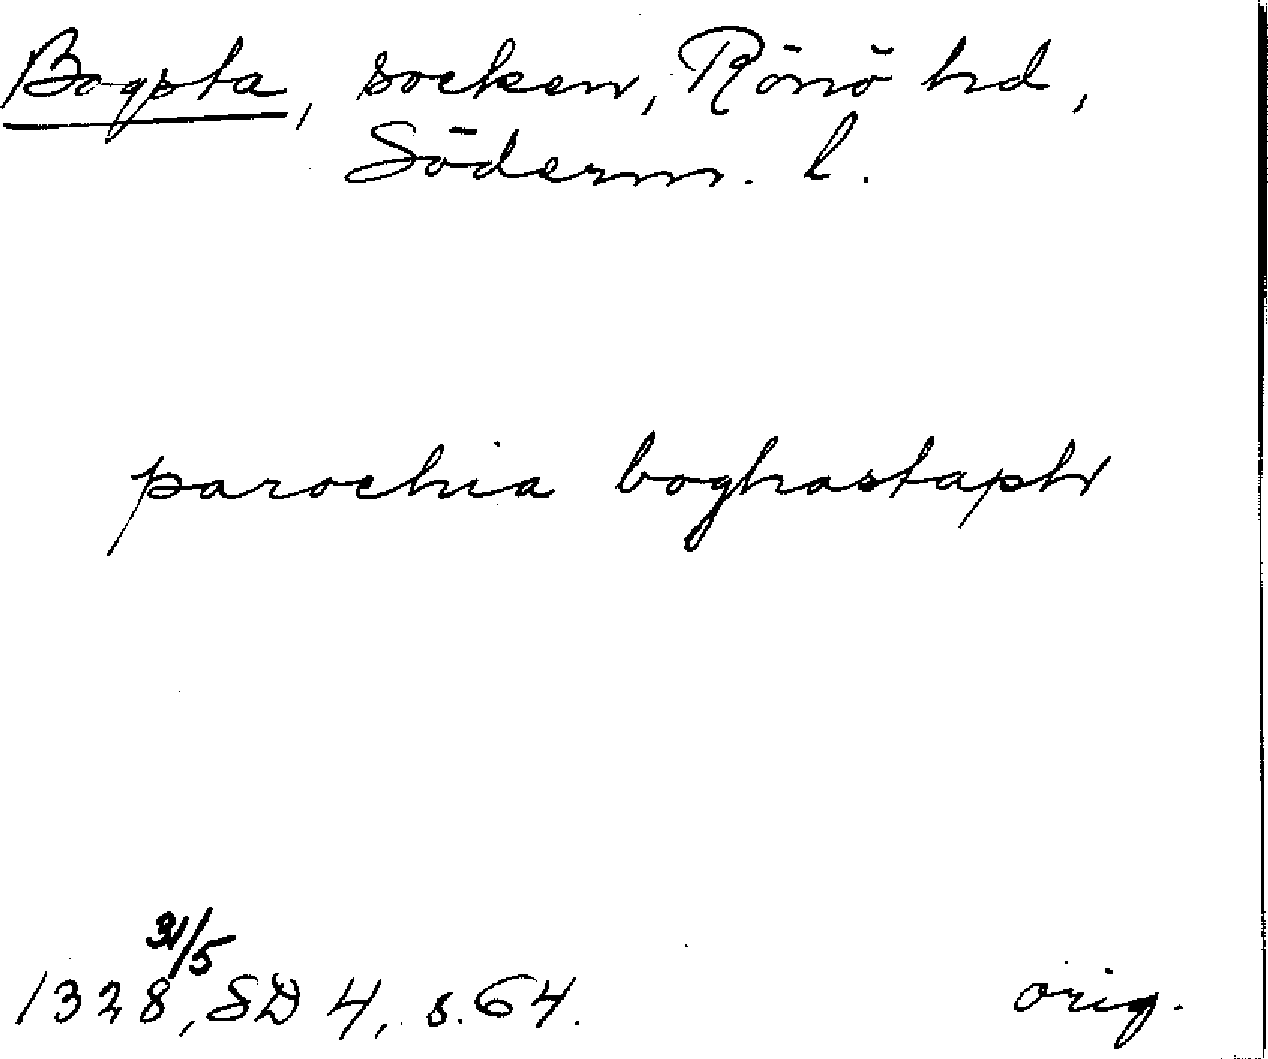 Bogsta, socken, Rönö hd,
Söderm. l.
parochia boghastaph
1328 31/5, SD 4, s. 64. orig.